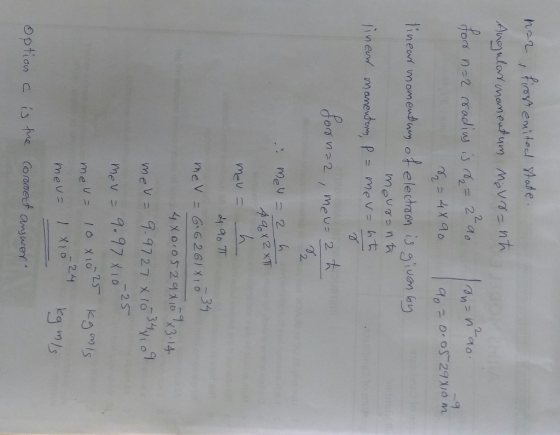 n=2, first exited state.
Angular momentum meVr = nħ
for n=2 radius is r₂ = 2²a₀ | rₙ = n²a₀.
r₂ = 4×a₀ | a₀ = 0.0529×10⁻⁹m
linear momentum of electron is given by
meVr = nħ
linear momentum, P = meV = nħ/r
for n=2, meV = 2ħ/r₂
∴ meV = 2h/4a₀×2×π
meV = h/4a₀π
meV = 6.6261×10⁻³⁴/4×0.0529×10⁻⁹×3.14
meV = 9.9727×10⁻³⁴×10⁹
meV = 9.97×10⁻²⁵
meV = 10×10⁻²⁵ kgm/s
meV = 1×10⁻²⁴ kgm/s
Option C is the correct answer.